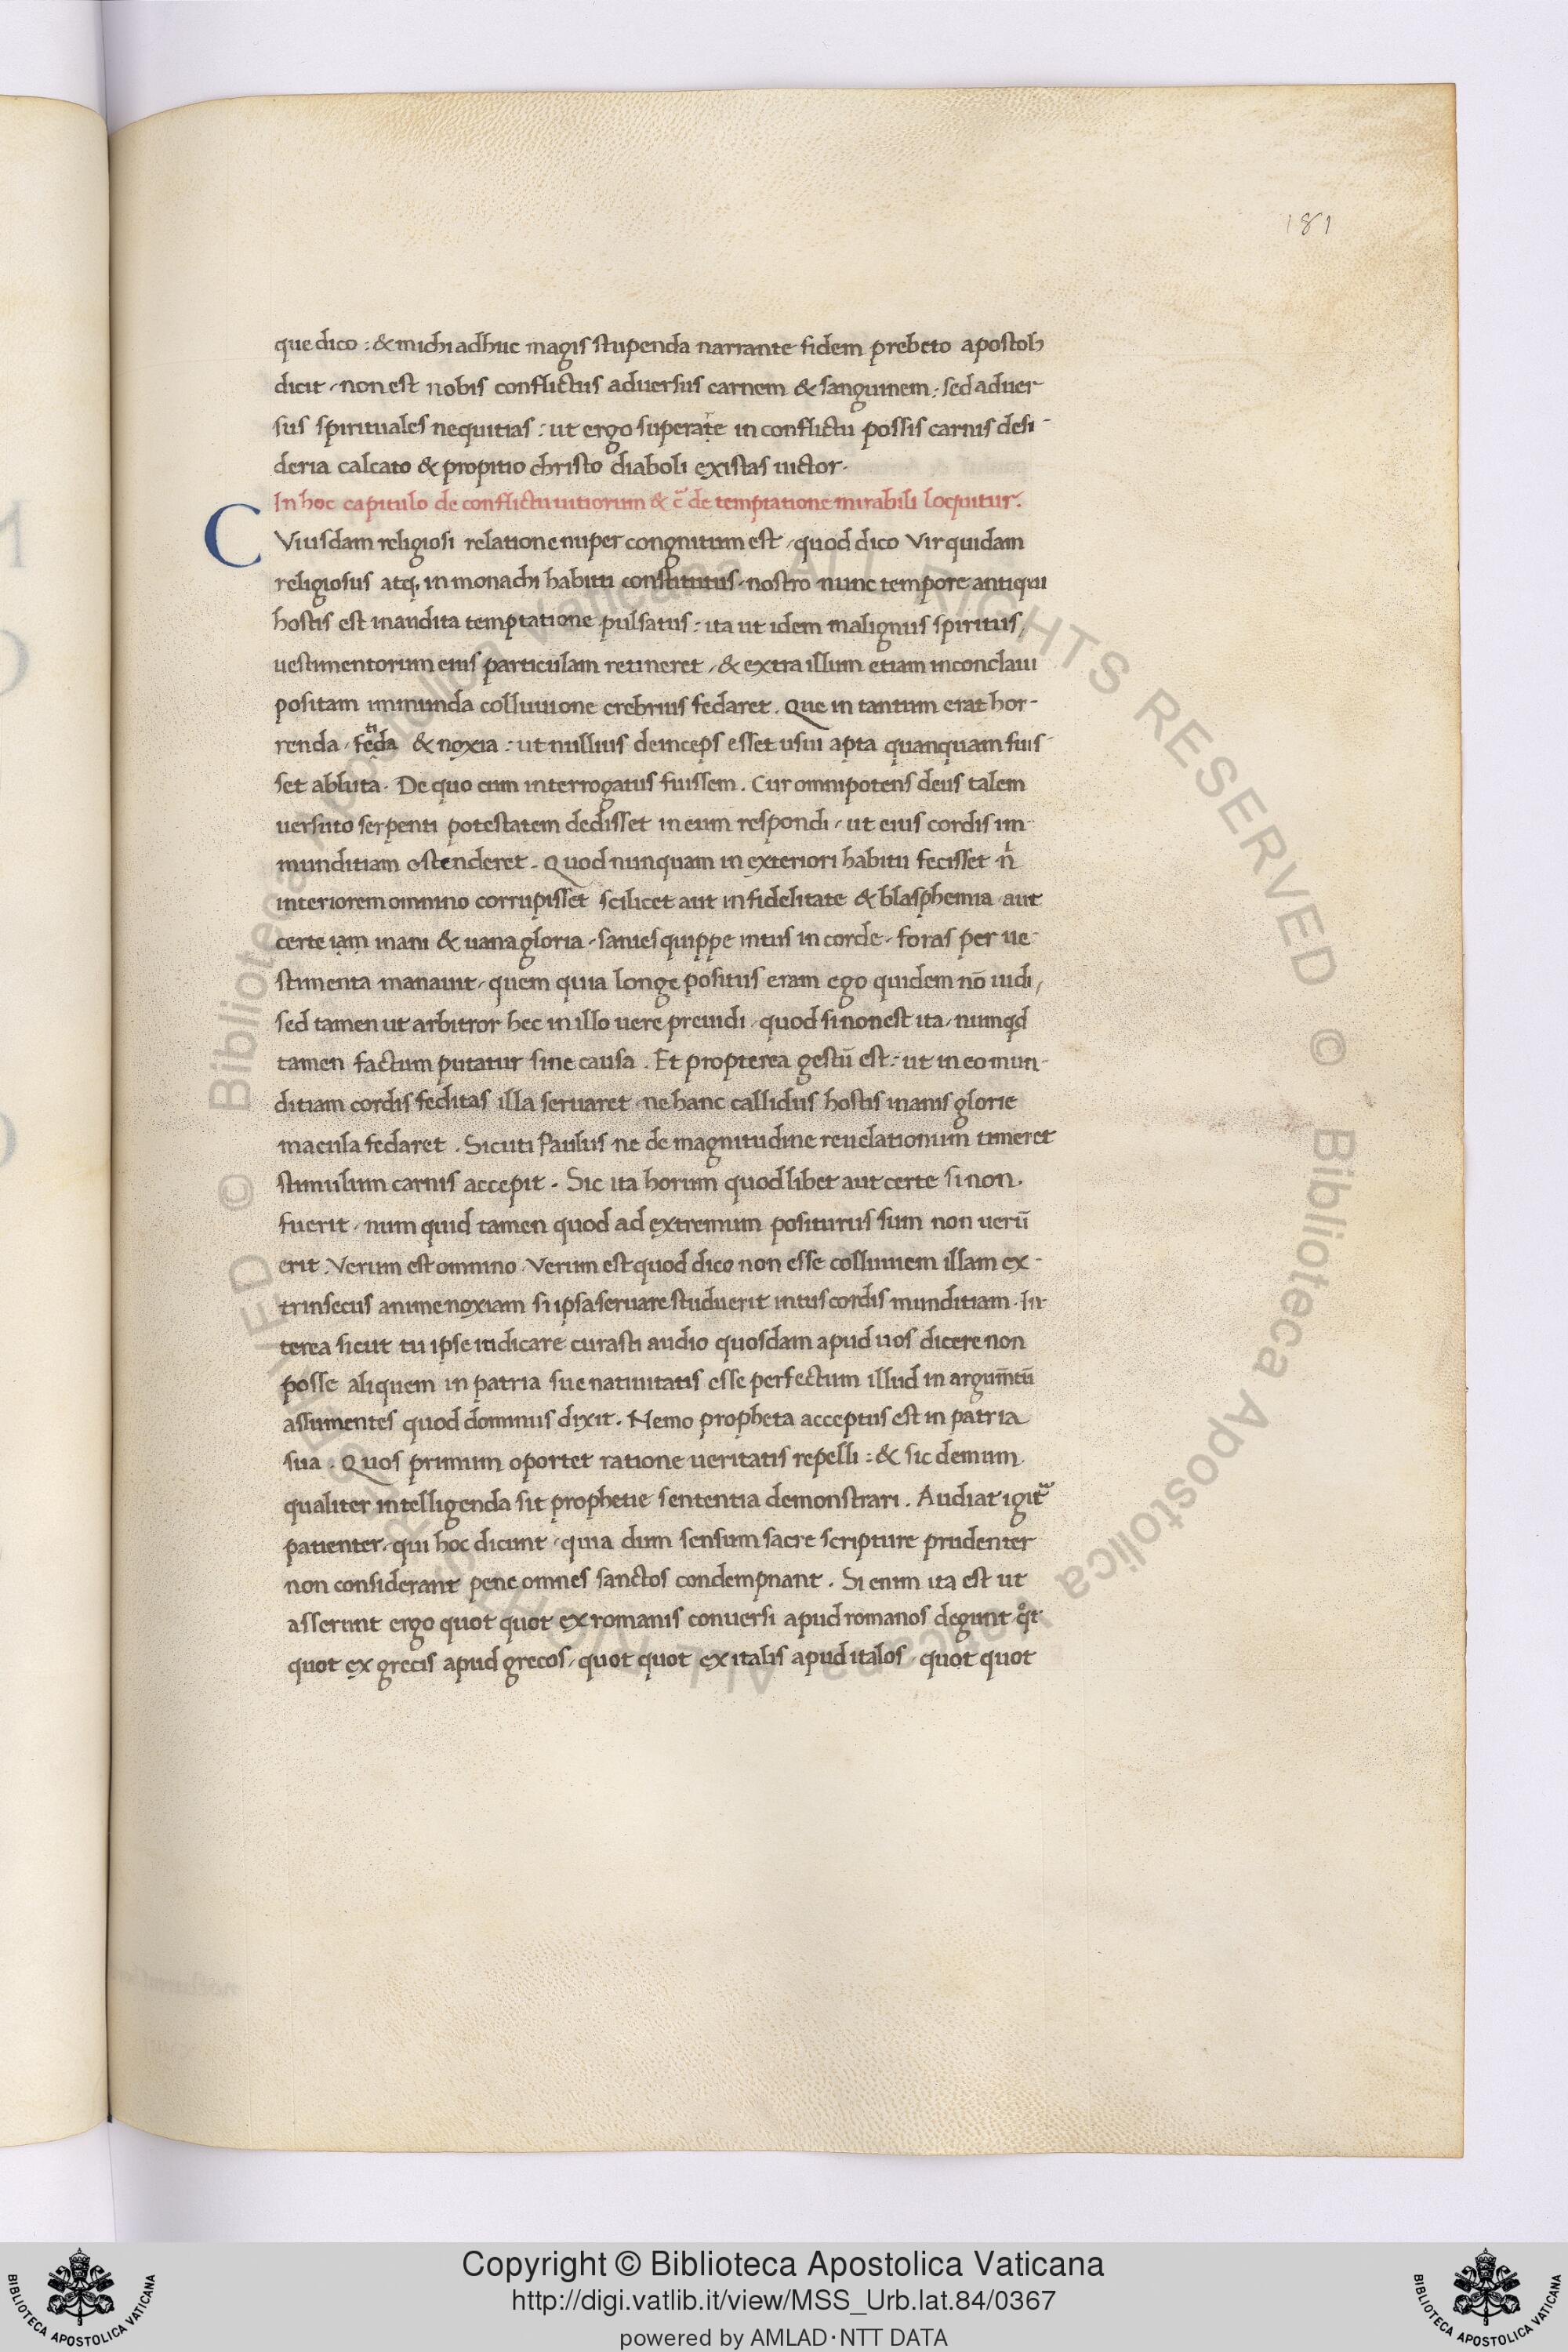 181
que dico : & michi adhuc magis stupenda narrante fidem prebeto apostoli
dicit , non est nobis conflictus adversus carnem & sanguinem ; sed adver-
sus spirituales nequitias : ut ergo superate in conflictu possis carnis desi-
deria calcato & propitio christo diaboli existas uictor .
In hoc capitulo de conflictu uitiorum & c̃ de temptatione mirabili loquitur .
C Viusdam religiosi relatione nuper congnitum est , quod dico Vir quidam
religiosus atq; in monachi habitu constitutus , nostro nunc tempore antiqui
hostis est inaudita temptatione pulsatus : ita ut idem malignus spiritus ,
uestimentorum eius particulam retineret , & extra illum etiam inconclaui
positam immunda colluuione crebrius fedaret . Que in tantum erat hor-
renda , feda & noxia : ut nullius deinceps esset usui apta quanquam fuis-
set abluta . De quo cum interrogatus fuissem . Cur omnipotens deus talem
uersuto serpenti potestatem dedisset in eum respondi , ut eius cordis im-
munditiam ostenderet . Quod nunquam in exteriori habitu fecisset ń
interiorem omnino corrupisset scilicet aut infidelitate & blasphemia aut
certe iam inani & uana gloria , sanies quippe intus in corde , foras per ue-
stimenta manauit , quem quia longe positus eram ego quidem nō uidi ,
sed tamen ut arbitror hec in illo uere preuidi , quod si non est ita , numqd
tamen factum putatur sine causa . Et propterea gestū est : ut in eo mun-
ditiam cordis feditas illa seruaret ne hanc callidus hostis inanis glorie
macula fedaret . Sicuti Paulus ne de magnitudine reuelationum timeret
stimulum carnis accepit . Sic ita horum quod libet aut certe si non .
fuerit , num quid tamen quod ad extremum positurus sum non uerū
erit . Verum est omnino . Verum est quod dico non esse colluuiem illam ex-
trinsecus anime noxiam si ipsa seruare studuerit intus cordis munditiam . In-
terea sicut tu ipse iudicare curasti audio quosdam apud uos dicere non
posse aliquem in patria sue natiuitatis esse perfectum illud in argum̄tū
assumentes quod dominus dixit . Nemo propheta acceptus est in patria
sua . Quos primum oportet ratione ueritatis repelli : & sic demum
qualiter intelligenda sit prophetie sententia demonstrari . Audiat igit̃
patienter , qui hoc dicunt , quia dum sensum sacre scripture prudenter
non considerant pene omnes sanctos condempnant . Si enim ita est ut
asserunt ergo quot quot ex romanis conuersi apud romanos degunt qͦt
quot ex grecis apud grecos , quot quot ex italis apud italos , quot quot
Copyright © Biblioteca Apostolica Vaticana
http://digi.vatlib.it/view/MSS_Urb.lat.84/0367
powered by AMLAD·NTT DATA